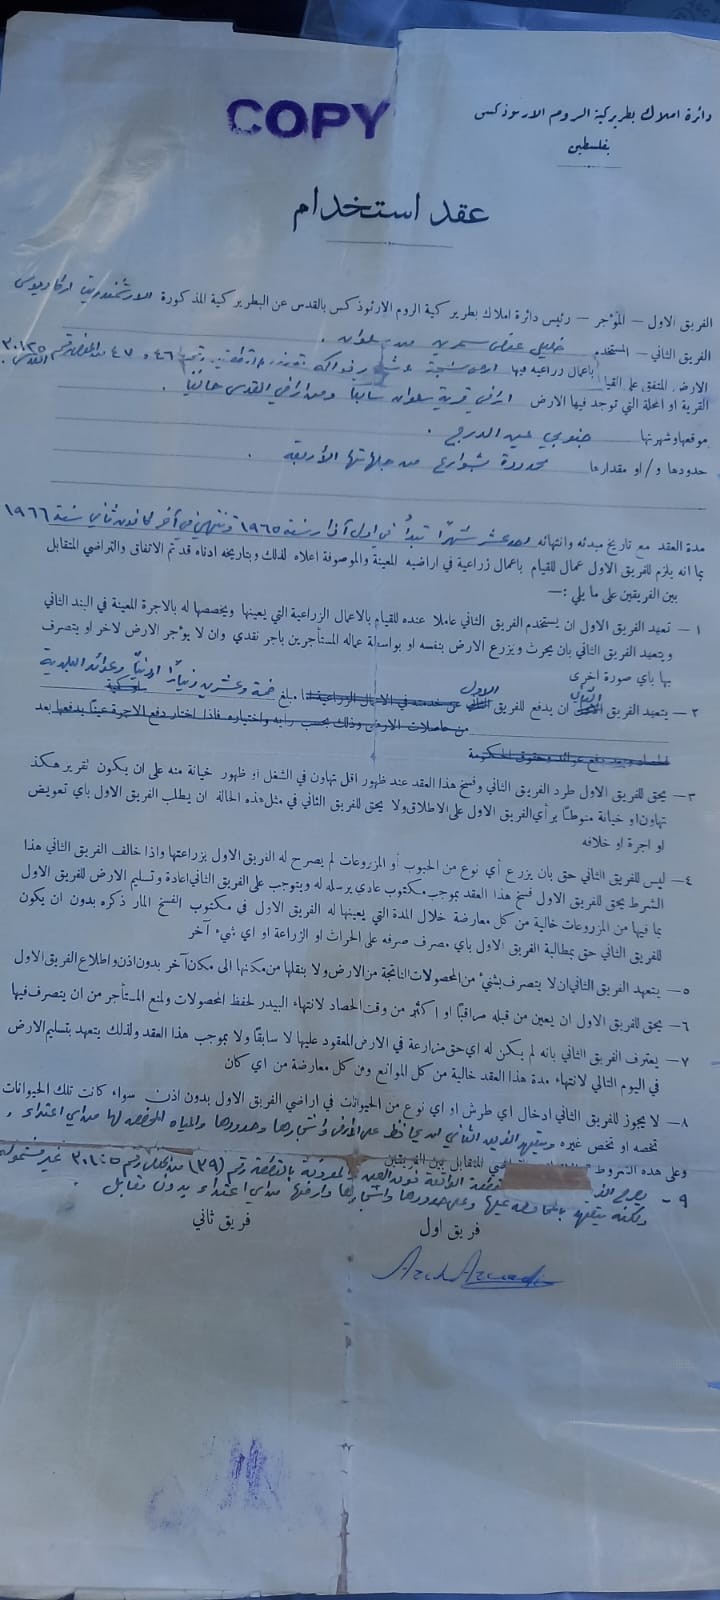 COPY
دائرة املاك بطريركية الروم الارثوذكس
بفلسطين
عقد استخدام
الفريق الاول — المؤجر — رئيس دائرة املاك بطريركية الروم الارثوذكس بالقدس عن البطريركية المذكورة الارشمندريت اركاديوس
الفريق الثاني — المستخدم خليل سمرين من سلوان .
الارض المتفق على القيام باعمال زراعية فيها ارض وفواكه ٤٦ و ٤٧
القرية او المحلة التي توجد فيها الارض اراضي قرية سلوان سابقا ومن اراضي القدس حاليا .
موقعها وشهرتها جنوبي عين الدرج .
حدودها و/او مقدارها محدودة بشوارع من جهاتها الأربعة .
مدة العقد مع تاريخ مبدئه وانتهائه احد عشر شهرًا تبدأ في اول آذار سنة ١٩٦٥ وتنتهي في آخر كانون ثاني سنة ١٩٦٦
بما انه يلزم للفريق الاول عمال للقيام باعمال زراعية في اراضيه المعينة والموصوفة اعلاه لذلك وبتاريخه ادناه قد تم الاتفاق والتراضي المتقابل
بين الفريقين على ما يلي :—
١ — تعهد الفريق الاول ان يستخدم الفريق الثاني عاملا عنده للقيام بالاعمال الزراعية التي يعينها ويخصصها له بالاجرة المعينة في البند الثاني
ويتعهد الفريق الثاني بان يحرث ويزرع الارض بنفسه او بواسطة عماله المستأجرين باجر نقدي وان لا يؤجر الارض لاخر او يتصرف
بها باي صورة اخرى
٢ — يتعهد الفريق الثاني ان يدفع للفريق الاول عن خدمته في الاعمال الزراعية مبلغ خمسة وعشرين دينارًا اردنيًا وعوائد البلدية
من حاصلات الارض وذلك بحسب رايه واختياره فاذا اختار دفع الاجرة عينا يدفعها بعد
الحصاد وبعد دفع عوائد وحقوق الحكومة
٣ — يحق للفريق الاول طرد الفريق الثاني وفسخ هذا العقد عند ظهور اقل تهاون في الشغل او ظهور خيانة منه على ان يكون تقرير هكذا
تهاون او خيانة منوطا برأي الفريق الاول على الاطلاق ولا يحق للفريق الثاني في مثل هذه الحالة ان يطلب الفريق الاول باي تعويض
او اجرة او خلافه
٤ — ليس للفريق الثاني حق بان يزرع أي نوع من الحبوب أو المزروعات لم يصرح له الفريق الاول بزراعتها واذا خالف الفريق الثاني هذا
الشرط يحق للفريق الاول فسخ هذا العقد بموجب مكتوب عادي يرسله له ويتوجب على الفريق الثاني اعادة وتسليم الارض للفريق الاول
بما فيها من المزروعات خالية من كل معارضة خلال المدة التي يعينها له الفريق الاول في مكتوب الفسخ المار ذكره بدون ان يكون
للفريق الثاني حق بمطالبة الفريق الاول باي مصرف صرفه على الحراث او الزراعة او اي شيء آخر
٥ — يتعهد الفريق الثاني ان لا يتصرف بشيء من المحصولات الناتجة من الارض ولا بنقلها من مكانها الى مكان آخر بدون اذن واطلاع الفريق الاول
٦ — يحق للفريق الاول ان يعين من قبله مراقبًا او اكثر من وقت الحصاد لانتهاء البيدر لحفظ المحصولات ولمنع المستأجر من ان يتصرف فيها
٧ — يعترف الفريق الثاني بانه لم يكن له اي حق مزارعة في الارض المعقود عليها لا سابقًا ولا بموجب هذا العقد ولذلك يتعهد بتسليم الارض
في اليوم التالي لانتهاء مدة هذا العقد خالية من كل الموانع ومن كل معارضة من اي كان
٨ — لا يجوز للفريق الثاني ادخال اي طرش او اي نوع من الحيوانات في اراضي الفريق الاول بدون اذن سواء كانت تلك الحيوانات
تخصه او تخص غيره ويتعهد الفريق الثاني ان يحافظ على الارض واشجارها وحدودها والمياه المخصصة لها من اي اعتداء .
وعلى هذه الشروط المتقابل بين الفريقين
٩ — يصرح الواقعة فوق العين المعروفة بالقطعة رقم (٣٩) من الحوض رقم غير مشمولة
ولكنه يتعهد بالمحافظة عليها وعلى حدودها واشجارها وارضها من اي اعتداء بدون مقابل .
فريق اول
فريق ثاني